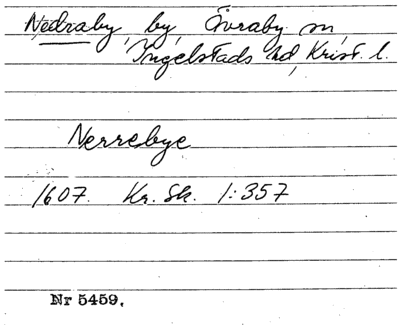 Nedraby, by, Övraby sn,
Ingelstads hd, Krist. l.
Nerrebye
1607. Kr. Sk. 1:357
Nr 5459.